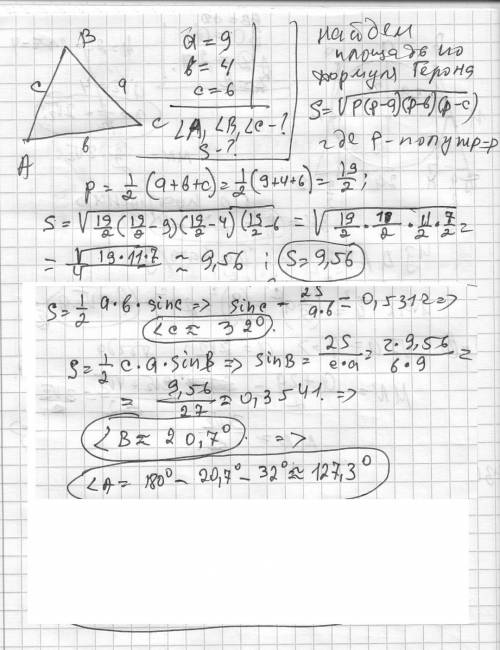 B
c
a
A
b
C
a = 9
b = 4
c = 6
∠A, ∠B, ∠C - ?
S - ?
найдем
площадь по
формул Герона
S = √p(p-a)(p-b)(p-c)
где p - полупер=р
p = 1/2 (a+b+c) = 1/2 (9+4+6) = 19/2 ;
S = √19/2 (19/2 - 9)(19/2 - 4)(19/2 - 6 = √19/2 · 1/2 · 11/2 · 7/2 =
= √19·11·7 / 4 ≈ 9,56 ; S = 9,56
S = 1/2 a·b·sinC => sinC = 2S/a·b = 0,5312 =>
∠C ≈ 32°.
S = 1/2 c·a·sinB => sinB = 2S/c·a = 2·9,56/6·9 =
= 9,56/27 = 0,3541. =>
∠B ≈ 20,7°. =>
∠A = 180° - 20,7° - 32° ≈ 127,3°